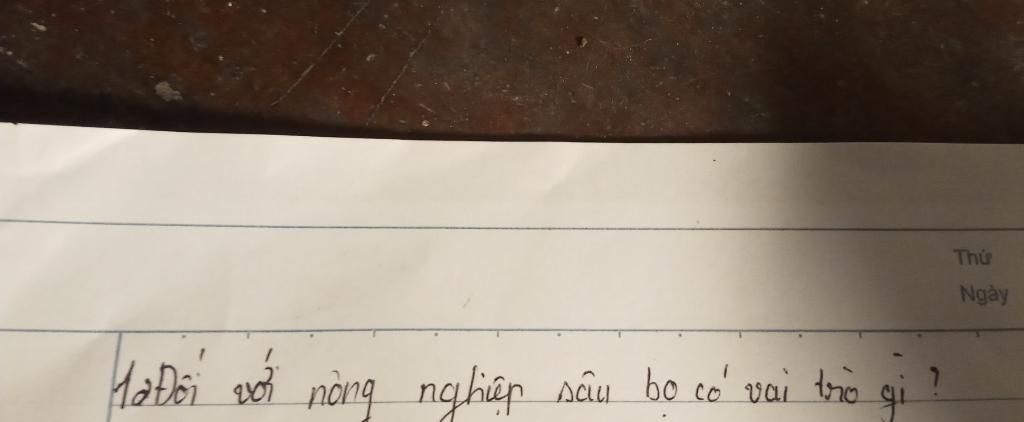 Thứ
Ngày
1. Đối với nông nghiệp sâu bọ có vai trò gì?